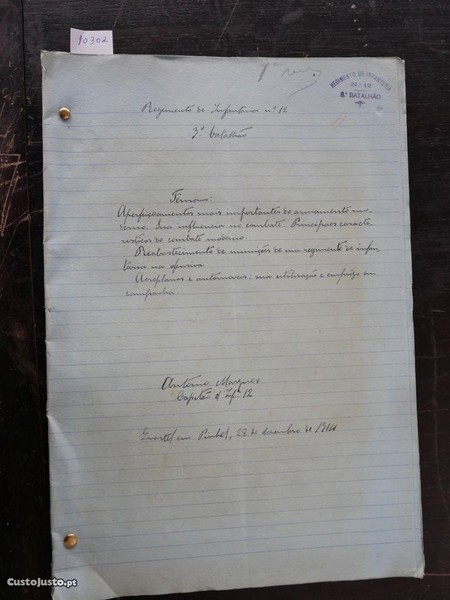 10302
REGIMENTO DE INFANTERIA
3.º BATALHÃO
Regimento de Infantaria nº 12
3.º batalhão
Themas:
Aperfeiçoamentos mais importantes do armamento mo-
derno. Sua influencia no combate. Principaes caracte
risticos do combate moderno
Reabastecimento de munições de um regimento de infan
taria na ofensiva
Aeroplanos e automoveis: sua utilização e emprêgo em
campanha.
Antonio Marques
Capitão d'Infª 12
Quartel em Pinhel, 28 de dezembro de
CustoJusto.pt